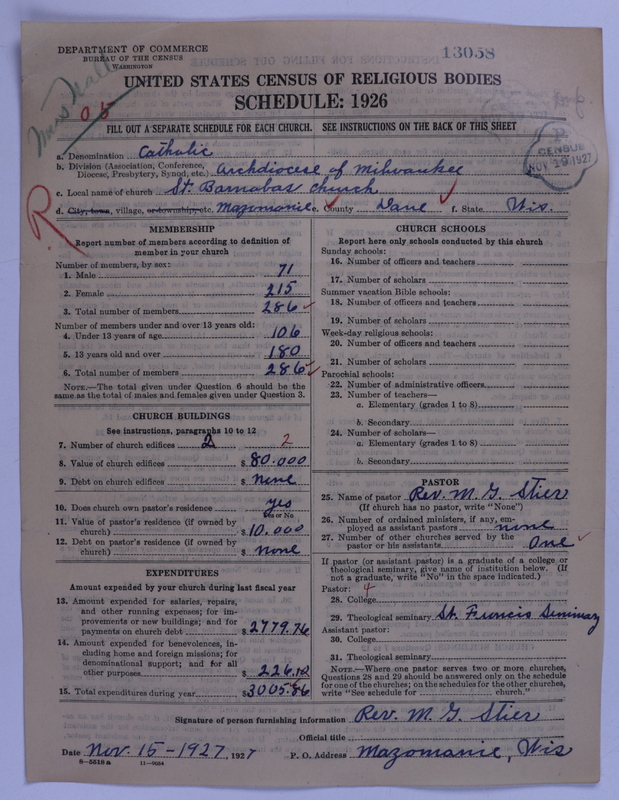 DEPARTMENT OF COMMERCE
BUREAU OF THE CENSUS
WASHINGTON
13058
UNITED STATES CENSUS OF RELIGIOUS BODIES
SCHEDULE: 1926
05
FILL OUT A SEPARATE SCHEDULE FOR EACH CHURCH. SEE INSTRUCTIONS ON THE BACK OF THIS SHEET
CENSUS
NOV 19 1927
R
a. Denomination Catholic
b. Division (Association, Conference, Diocese, Presbytery, Synod, etc.) Archdiocese of Milwaukee
c. Local name of church St. Barnabas church
d. City, town, village, or township, etc. Mazomanie e. County Dane f. State Wis.
MEMBERSHIP
Report number of members according to definition of
member in your church
Number of members, by sex:
1. Male 71
2. Female 215
3. Total number of members 286
Number of members under and over 13 years old:
4. Under 13 years of age 106
5. 13 years old and over 180
6. Total number of members 286
NOTE.—The total given under Question 6 should be the
same as the total of males and females given under Question 3.
CHURCH BUILDINGS
See instructions, paragraphs 10 to 12
7. Number of church edifices 2 2
8. Value of church edifices $ 80.000
9. Debt on church edifices $ none
10. Does church own pastor's residence? yes
Yes or No
11. Value of pastor's residence (if owned by
church) $ 10.000
12. Debt on pastor's residence (if owned by
church) $ none
EXPENDITURES
Amount expended by your church during last fiscal year
13. Amount expended for salaries, repairs,
and other running expenses; for improvements
or new buildings; and for
payments on church debt $ 2779.76
14. Amount expended for benevolences, including
home and foreign missions; for
denominational support; and for all
other purposes $ 226.10
15. Total expenditures during year $ 3005.86
CHURCH SCHOOLS
Report here only schools conducted by this church
Sunday schools:
16. Number of officers and teachers
17. Number of scholars
Summer vacation Bible schools:
18. Number of officers and teachers
19. Number of scholars
Week-day religious schools:
20. Number of officers and teachers
21. Number of scholars
Parochial schools:
22. Number of administrative officers
23. Number of teachers—
a. Elementary (grades 1 to 8)
b. Secondary
24. Number of scholars—
a. Elementary (grades 1 to 8)
b. Secondary
PASTOR
25. Name of pastor Rev. M. G. Stier
(If church has no pastor, write "None")
26. Number of ordained ministers, if any, employed
as assistant pastors none
27. Number of other churches served by the
pastor or his assistants One
If pastor (or assistant pastor) is a graduate of a college or
theological seminary, give name of institution below. (If
not a graduate, write "No" in the space indicated.)
Pastor: 4
28. College
29. Theological seminary St. Francis Seminary
Assistant pastor:
30. College
31. Theological seminary
NOTE.—Where one pastor serves two or more churches,
Questions 28 and 29 should be answered only on the schedule
for one of the churches; on the schedules for the other churches,
write "See schedule for church."
Signature of person furnishing information Rev. M. G. Stier
Official title
Date Nov. 15-1927, 1927 P. O. Address Mazomanie, Wis
8—5516 a 11—9054